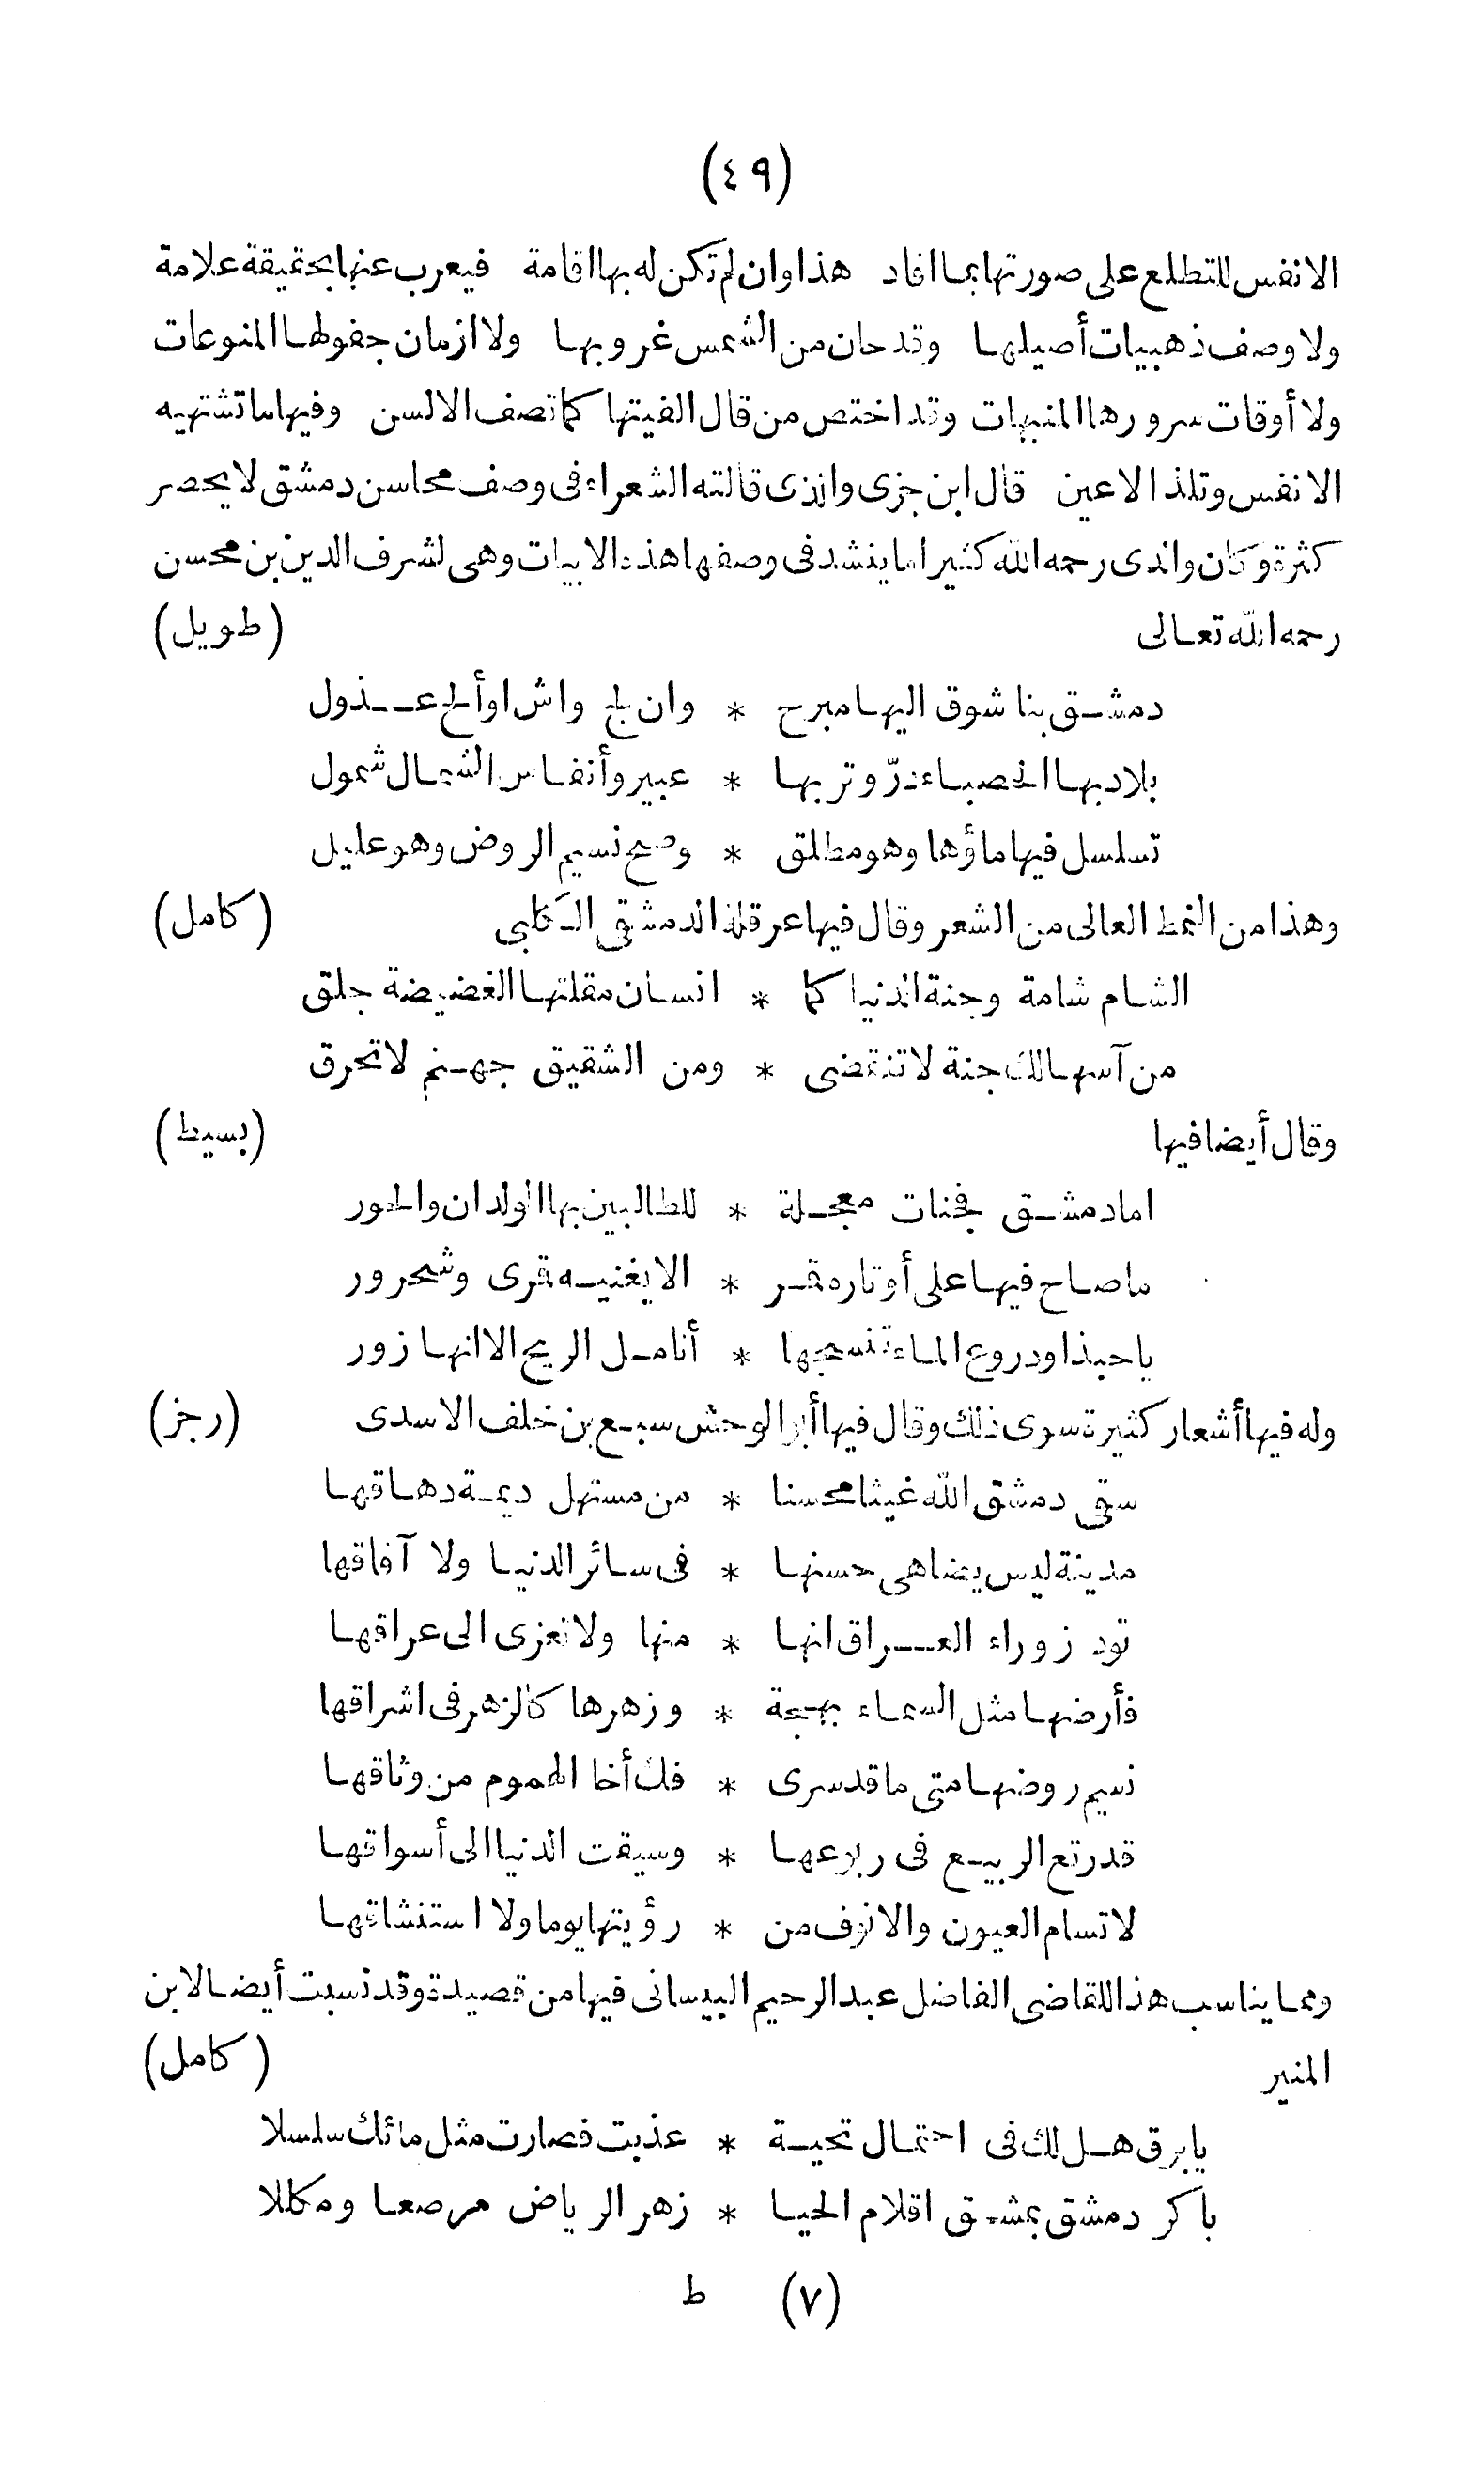 (٤٩)
الانفس للتطلع على صورتها بما افاد هذا وان لم تكن له بها اقامة فيعرب عنها بحقيقة علامة
ولا وصف ذهبيات أصيلها وقد حان من الشمس غروبها ولا ازمان جفولها المنوعات
ولا أوقات سرورها المنبهات وقد اختص من قال الفيتها كما تصف الالسن وفيها ما تشتهيه
الانفس وتلذ الاعين قال ابن جزى والذى قالته الشعراء فى وصف محاسن دمشق لا يحصر
كثرة وكان والدى رحمه الله كثيرا ما ينشد فى وصفها هذه الابيات وهى لشرف الدين بن محسن
رحمه الله تعالى (طويل)
دمشق بنا شوق اليها مبرح * وان لج واش اوألح عذول
بلاد بها الحصباء درّ وتربها * عبير وأنفاس الشمال شمول
تسلسل فيها ماؤها وهو مطلق * وصح نسيم الروض وهو عليل
وهذا من النمط العالى من الشعر وقال فيها عرقلة الدمشقى الكلبى (كامل)
الشام شامة وجنة الدنيا كما * انسان مقلتها الغضيضة جلق
من آسها لك جنة لا تنقضى * ومن الشقيق جهنم لا تحرق
وقال أيضا فيها (بسيط)
اما دمشق فجنات معجلة * للطالبين بها الولدان والحور
ما صاح فيها على أوتاره قمر * الا يغنيه قمرى وشحرور
يا حبذا ودروع الماء تنسجها * أنامل الريح الا انها زور
وله فيها أشعار كثيرة سوى ذلك وقال فيها أبو الوحش سبع بن خلف الاسدى (رجز)
سقى دمشق الله غيثا محسنا * من مستهل ديمة دهاقها
مدينة ليس يضاهى حسنها * فى سائر الدنيا ولا آفاقها
تود زوراء العراق انها * منها ولا تعزى الى عراقها
فأرضها مثل السماء بهجة * وزهرها كالزهر فى اشراقها
نسيم روضها متى ما قد سرى * فك أخا الهموم من وثاقها
قد رتع الربيع فى ربوعها * وسيقت الدنيا الى أسواقها
لا تسام العيون والانوف من * رؤيتها يوما ولا استنشاقها
ومما يناسب هذا للقاضى الفاضل عبد الرحيم البيسانى فيها من قصيدة وقد نسبت أيضا لابن
المنير (كامل)
يا برق هل لك فى احتمال تحية * عذبت فصارت مثل مائك سلسلا
باكر دمشق بمشق اقلام الحيا * زهر الرياض مرصعا ومكللا
(٧) ط